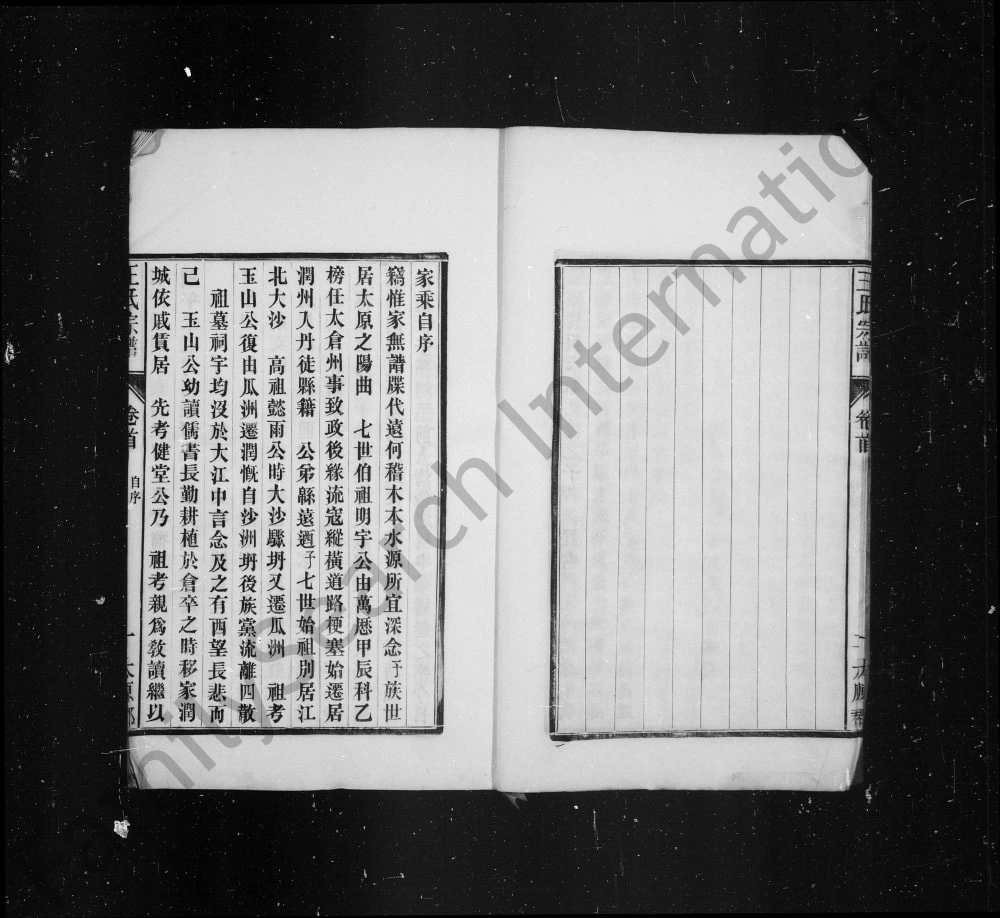 王氏宗譜
卷首
家乘自序
竊惟家無譜牒代遠何稽木本水源所宜深念予族世
居太原之陽曲　七世伯祖明宇公由萬厯甲辰科乙
榜仕太倉州事致政後緣流寇縱橫道路梗塞始遷居
潤州入丹徒縣籍　公弟繇遠迺予七世始祖別居江
北大沙　高祖懿雨公時大沙驟坍又遷瓜洲　祖考
玉山公復由瓜洲遷潤慨自沙洲坍後族黨流離四散
　祖墓祠宇均沒於大江中言念及之有西望長悲而
已　玉山公幼讀儒書長勤耕植於倉卒之時移家潤
城依戚賃居　先考健堂公乃　祖考親爲敎讀繼以
王氏宗譜
卷首
自序
一
太原郡
FamilySearch International